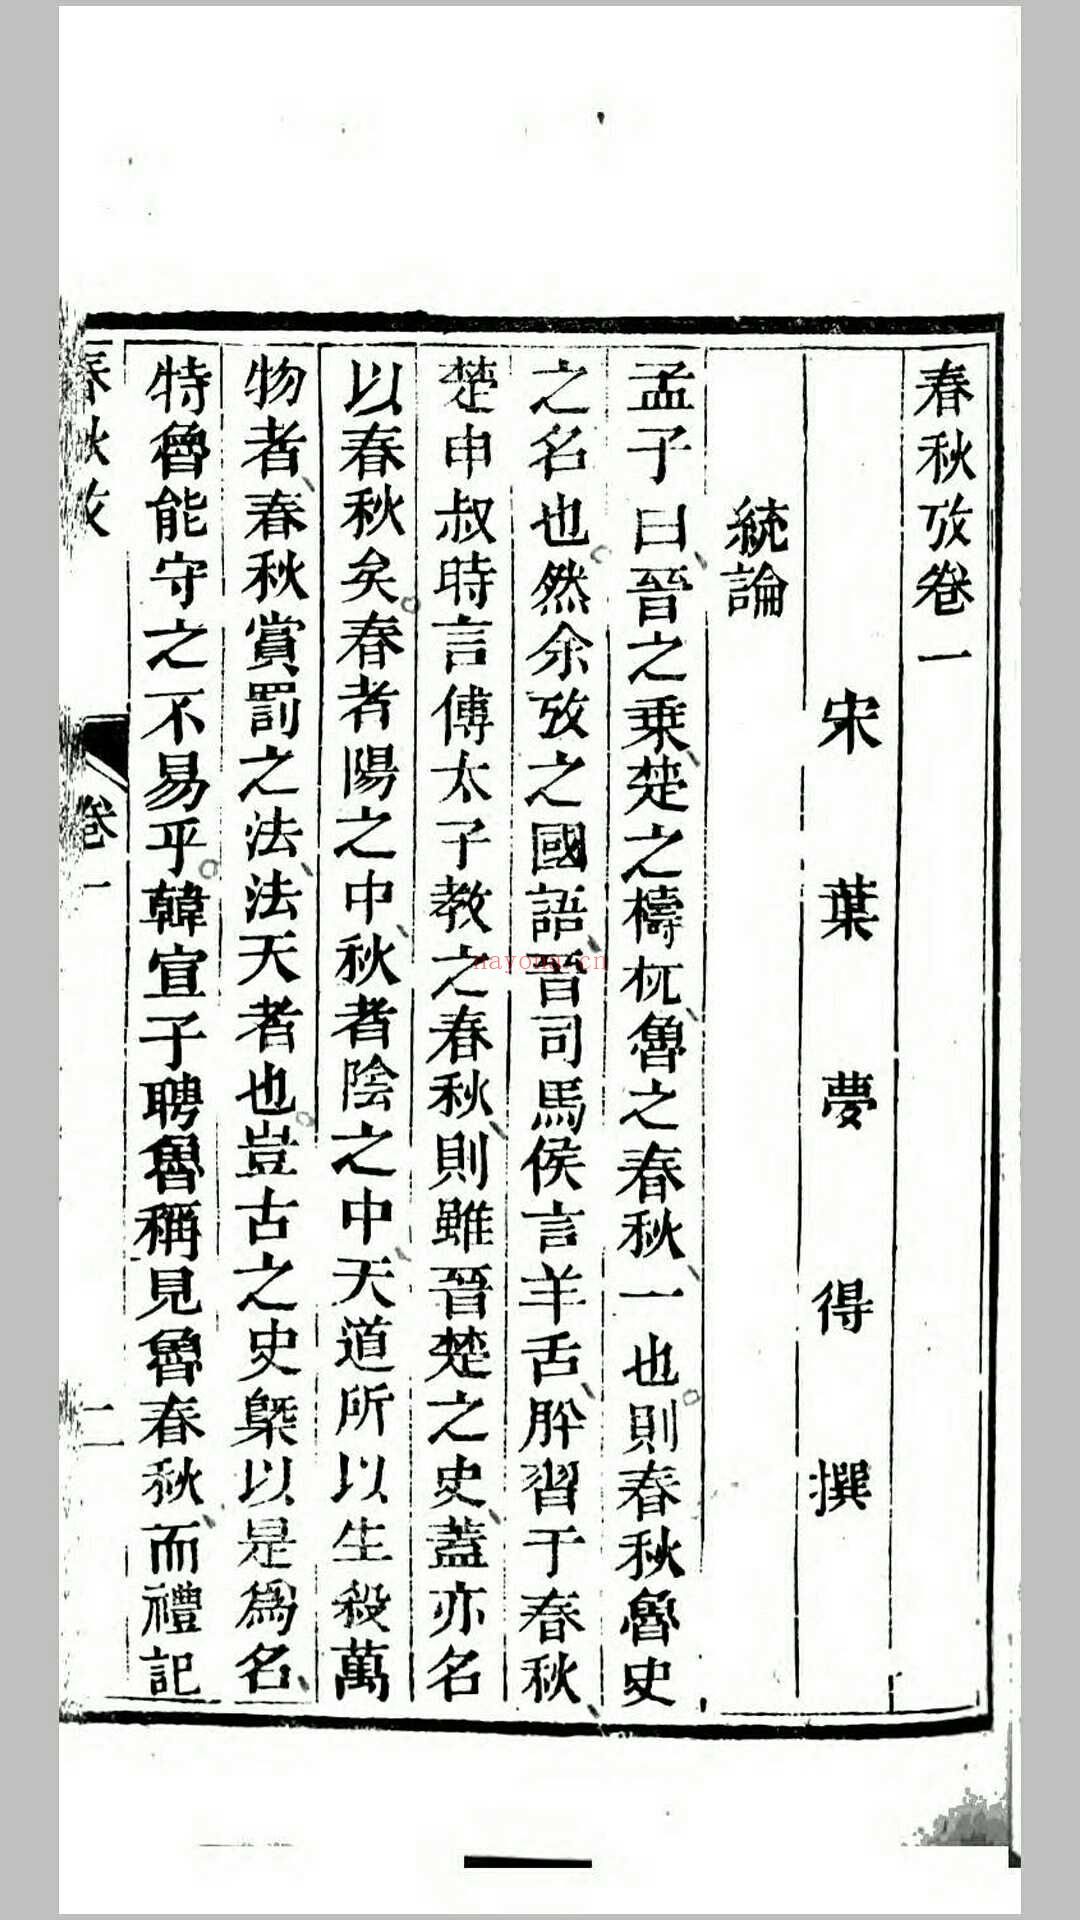 春秋攷卷一
宋葉夢得撰
統論
孟子曰晉之乗楚之檮杌魯之春秋一也則春秋魯史
之名也然余攷之國語晉司馬侯言羊舌肸習于春秋
楚申叔時言傅太子教之春秋則雖晉楚之史蓋亦名
以春秋矣春者陽之中秋者陰之中天道所以生殺萬
物者春秋賞罰之法法天者也豈古之史槩以是爲名
特魯能守之不易乎韓宣子聘魯稱見魯春秋而禮記
春秋攷
卷一
二
nayong.cn